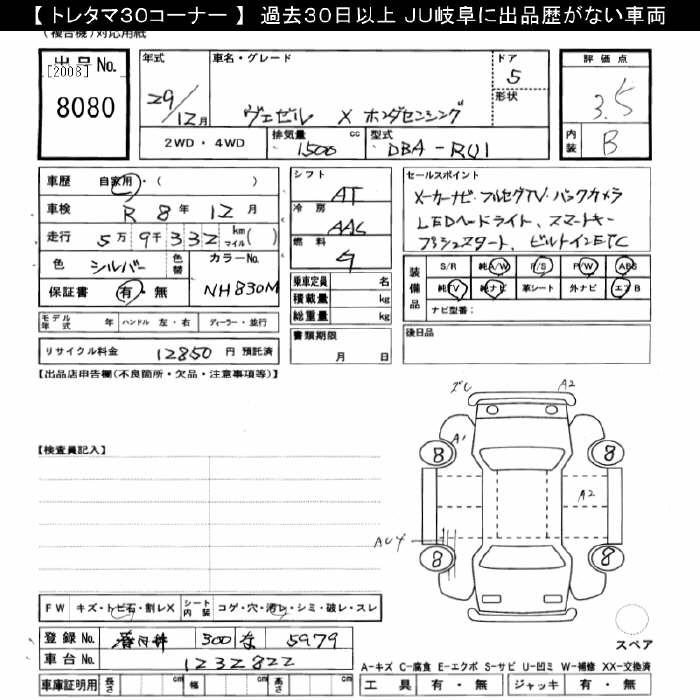 【 トレタマ30コーナー 】 過去30日以上 JU岐阜に出品歴がない車両
(複合機)対応用紙
出品No.
[2008]
8080
年式 29/12月
車名・グレード ヴェゼル X ホンダセンシング
ドア 5
形状
評価点 3.5
内装 B
2WD・4WD
排気量 1500 cc
型式 DBA-RU1
車歴 自家用・( )
車検 R 8年 12月
走行 5万 9千 332 km マイル( )
色 シルバー 色替 カラーNo. NH830M
保証書 有・無
シフト AT
冷房 AAC
燃料 ガ
乗車定員 名
積載量 kg
総重量 kg
セールスポイント
メーカーナビ・フルセグTV・バックカメラ
LEDヘッドライト、スマートキー
プッシュスタート、ビルトインETC
装備品 S/R 純A/W P/S P/W ABS
純TV 純ナビ 革シート 外ナビ エアB
ナビ型番:
モデル年式 年 ハンドル 左・右 ディーラー・並行
リサイクル料金 12850 円 預託済
書類期限 月 日
後日品
【出品店申告欄(不良箇所・欠品・注意事項等)】
ズレ A2
A1
8 8
A2
AU4
8 8
【検査員記入】
FW キズ・トビ石・割レX シート内装 コゲ・穴・汚レ・シミ・破レ・スレ
登録No. 300 な 5979
車台No. 1232822
スペア
A-キズ C-腐食 E-エクボ S-サビ U-凹ミ W-補修 XX-交換済
車庫証明用 長さ cm 幅 cm 高さ cm
工具 有・無 ジャッキ 有・無